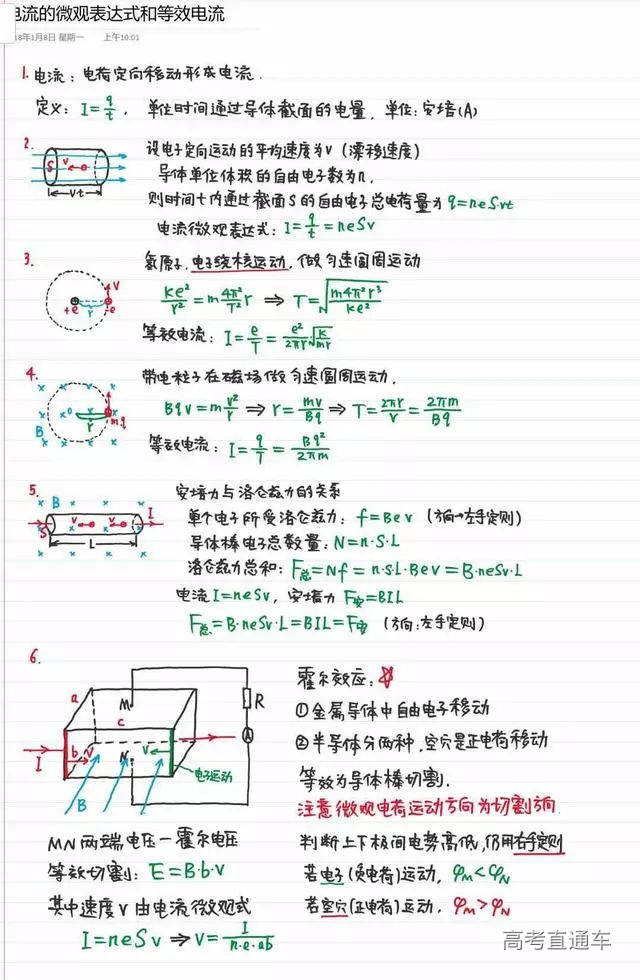 电流的微观表达式和等效电流
18年1月8日 星期一 上午10:01
1. 电流：电荷定向移动形成电流.
定义：I=q/t， 单位时间通过导体截面的电量，单位：安培(A)
2. 设电子定向运动的平均速度为v (漂移速度)
导体单位体积的自由电子数为n.
则时间t内通过截面S的自由电子总电荷量为 q=neS·vt
电流微观表达式：I=q/t=neSv
S v
vt
3. 氢原子，电子绕核运动，做匀速圆周运动
ke²/r²=m4π²/T² r ⇒ T=√(m4π²r³/ke²)
等效电流：I=e/T=e²/2πr √(k/mr)
+e r -e v
4. 带电粒子在磁场做匀速圆周运动.
Bqv=mv²/r ⇒ r=mv/Bq ⇒ T=2πr/v=2πm/Bq
等效电流：I=q/T=Bq²/2πm
B o r m.q
5. 安培力与洛仑兹力的关系
单个电子所受洛仑兹力：f=Bev (方向→左手定则)
导体棒电子总数量：N=n·S·L
洛仑兹力总和：F总=Nf=n·S·L·Bev=B·neSv·L
电流 I=neSv，安培力 F安=BIL
F总=B·neSv·L=BIL=F安 (方向：左手定则)
B v v I
S L
6.
霍尔效应：
①金属导体中自由电子移动
②半导体分两种，空穴是正电荷移动
等效为导体棒切割.
注意微观电荷运动方向为切割方向.
a M c R
A
I b v N v
B 电子运动
MN两端电压—霍尔电压
等效切割：E=B·b·v
其中速度v由电流微观式
I=neSv ⇒ v=I/n·e·ab
判断上下极间电势高低，仍用右手定则
若电子(负电荷)运动，φM<φN
若空穴(正电荷)运动，φM>φN
高考直通车